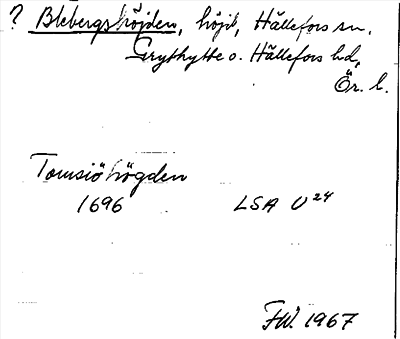 ? Blebergshöjden, höjd, Hällefors sn,
Grythytte o. Hällefors hd,
Ör. l.
Tomsiöhögden
1696 LSA U 24
FW. 1967